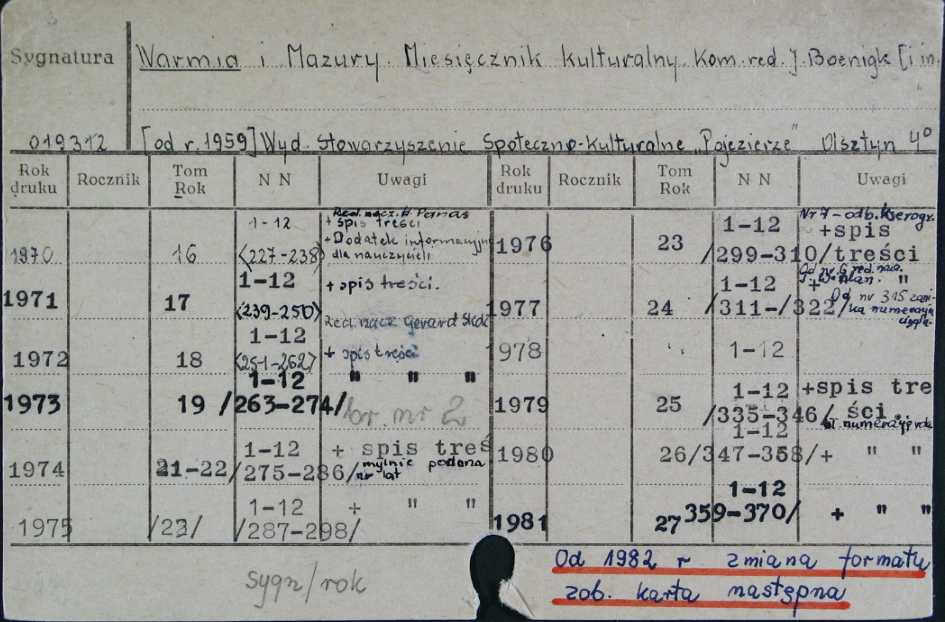 Sygnatura
Warmia i Mazury. Miesięcznik kulturalny. Kom. red. J. Boenigk [i in.
019312 [od r. 1959] Wyd. Stowarzyszenie Społeczno-kulturalne „Pojezierze” Olsztyn 4°
Rok druku Rocznik Tom Rok N N Uwagi Rok druku Rocznik Tom Rok N N Uwagi
Red. nacz. H. Panas
1970 16 1-12 <227-238> + spis treści
+ Dodatek informacyjn
dla nauczycieli
1971 17 1-12 <239-250> + spis treści.
Red. nacz Gerard Skok
1972 18 1-12 <251-262> + spis treści
1973 19 1-12 /263-274/ " " "
br. nr 2
1974 21-22 1-12 /275-286/ + spis treś
mylnie podana
nr lat
1975 /23/ 1-12 /287-298/ + " "
1976 23 1-12 /299-310/ Nr 7 - odb. kserogr.
+spis
treści
1977 24 1-12 /311-/322/ Od nr 6 red. nacz.
+ "
Od nr 315
numeracja
978 1-12
1979 25 1-12 /335-346/ +spis tre
ści.
1980 26 1-12 /347-358/ + " "
1981 27 1-12 359-370/ + " "
Od 1982 r zmiana formatu
zob. karta następna
sygn/rok